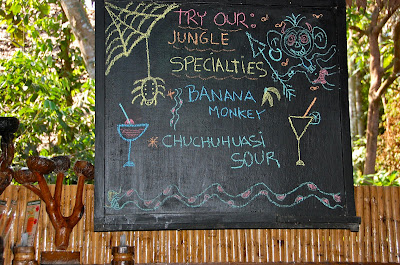 TRY OUR
JUNGLE
SPECIALTIES
BANANA
MONKEY
CHUCHUHUASI
SOUR